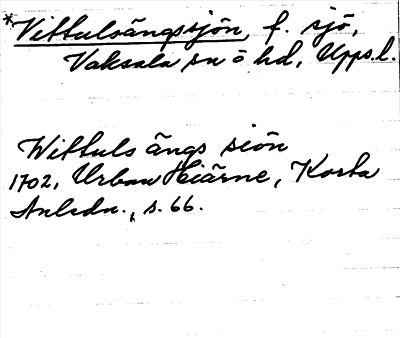 *Vittulsängssjön, f. sjö,
Vaksala sn o hd, Upps.l.
Wittuls ängs siön
1702, Urban Hiärne, Korta
Anledn., s. 66.